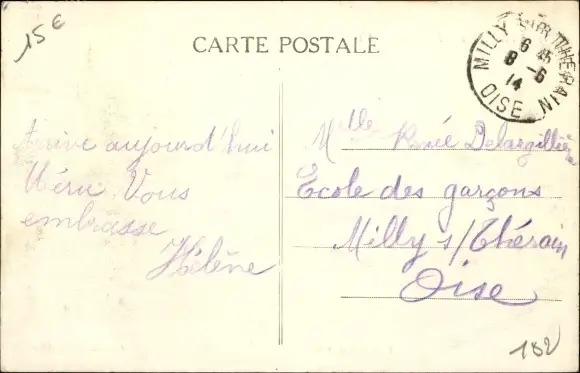 15€
CARTE POSTALE
MILLY SUR THERAIN
6 45
8 -6
14
OISE
Arrive aujourd'hui
Méru Vous
embrasse
Hélène
Mlle Renée Delargillière
Ecole des garçons
Milly s/Thérain
Oise
182